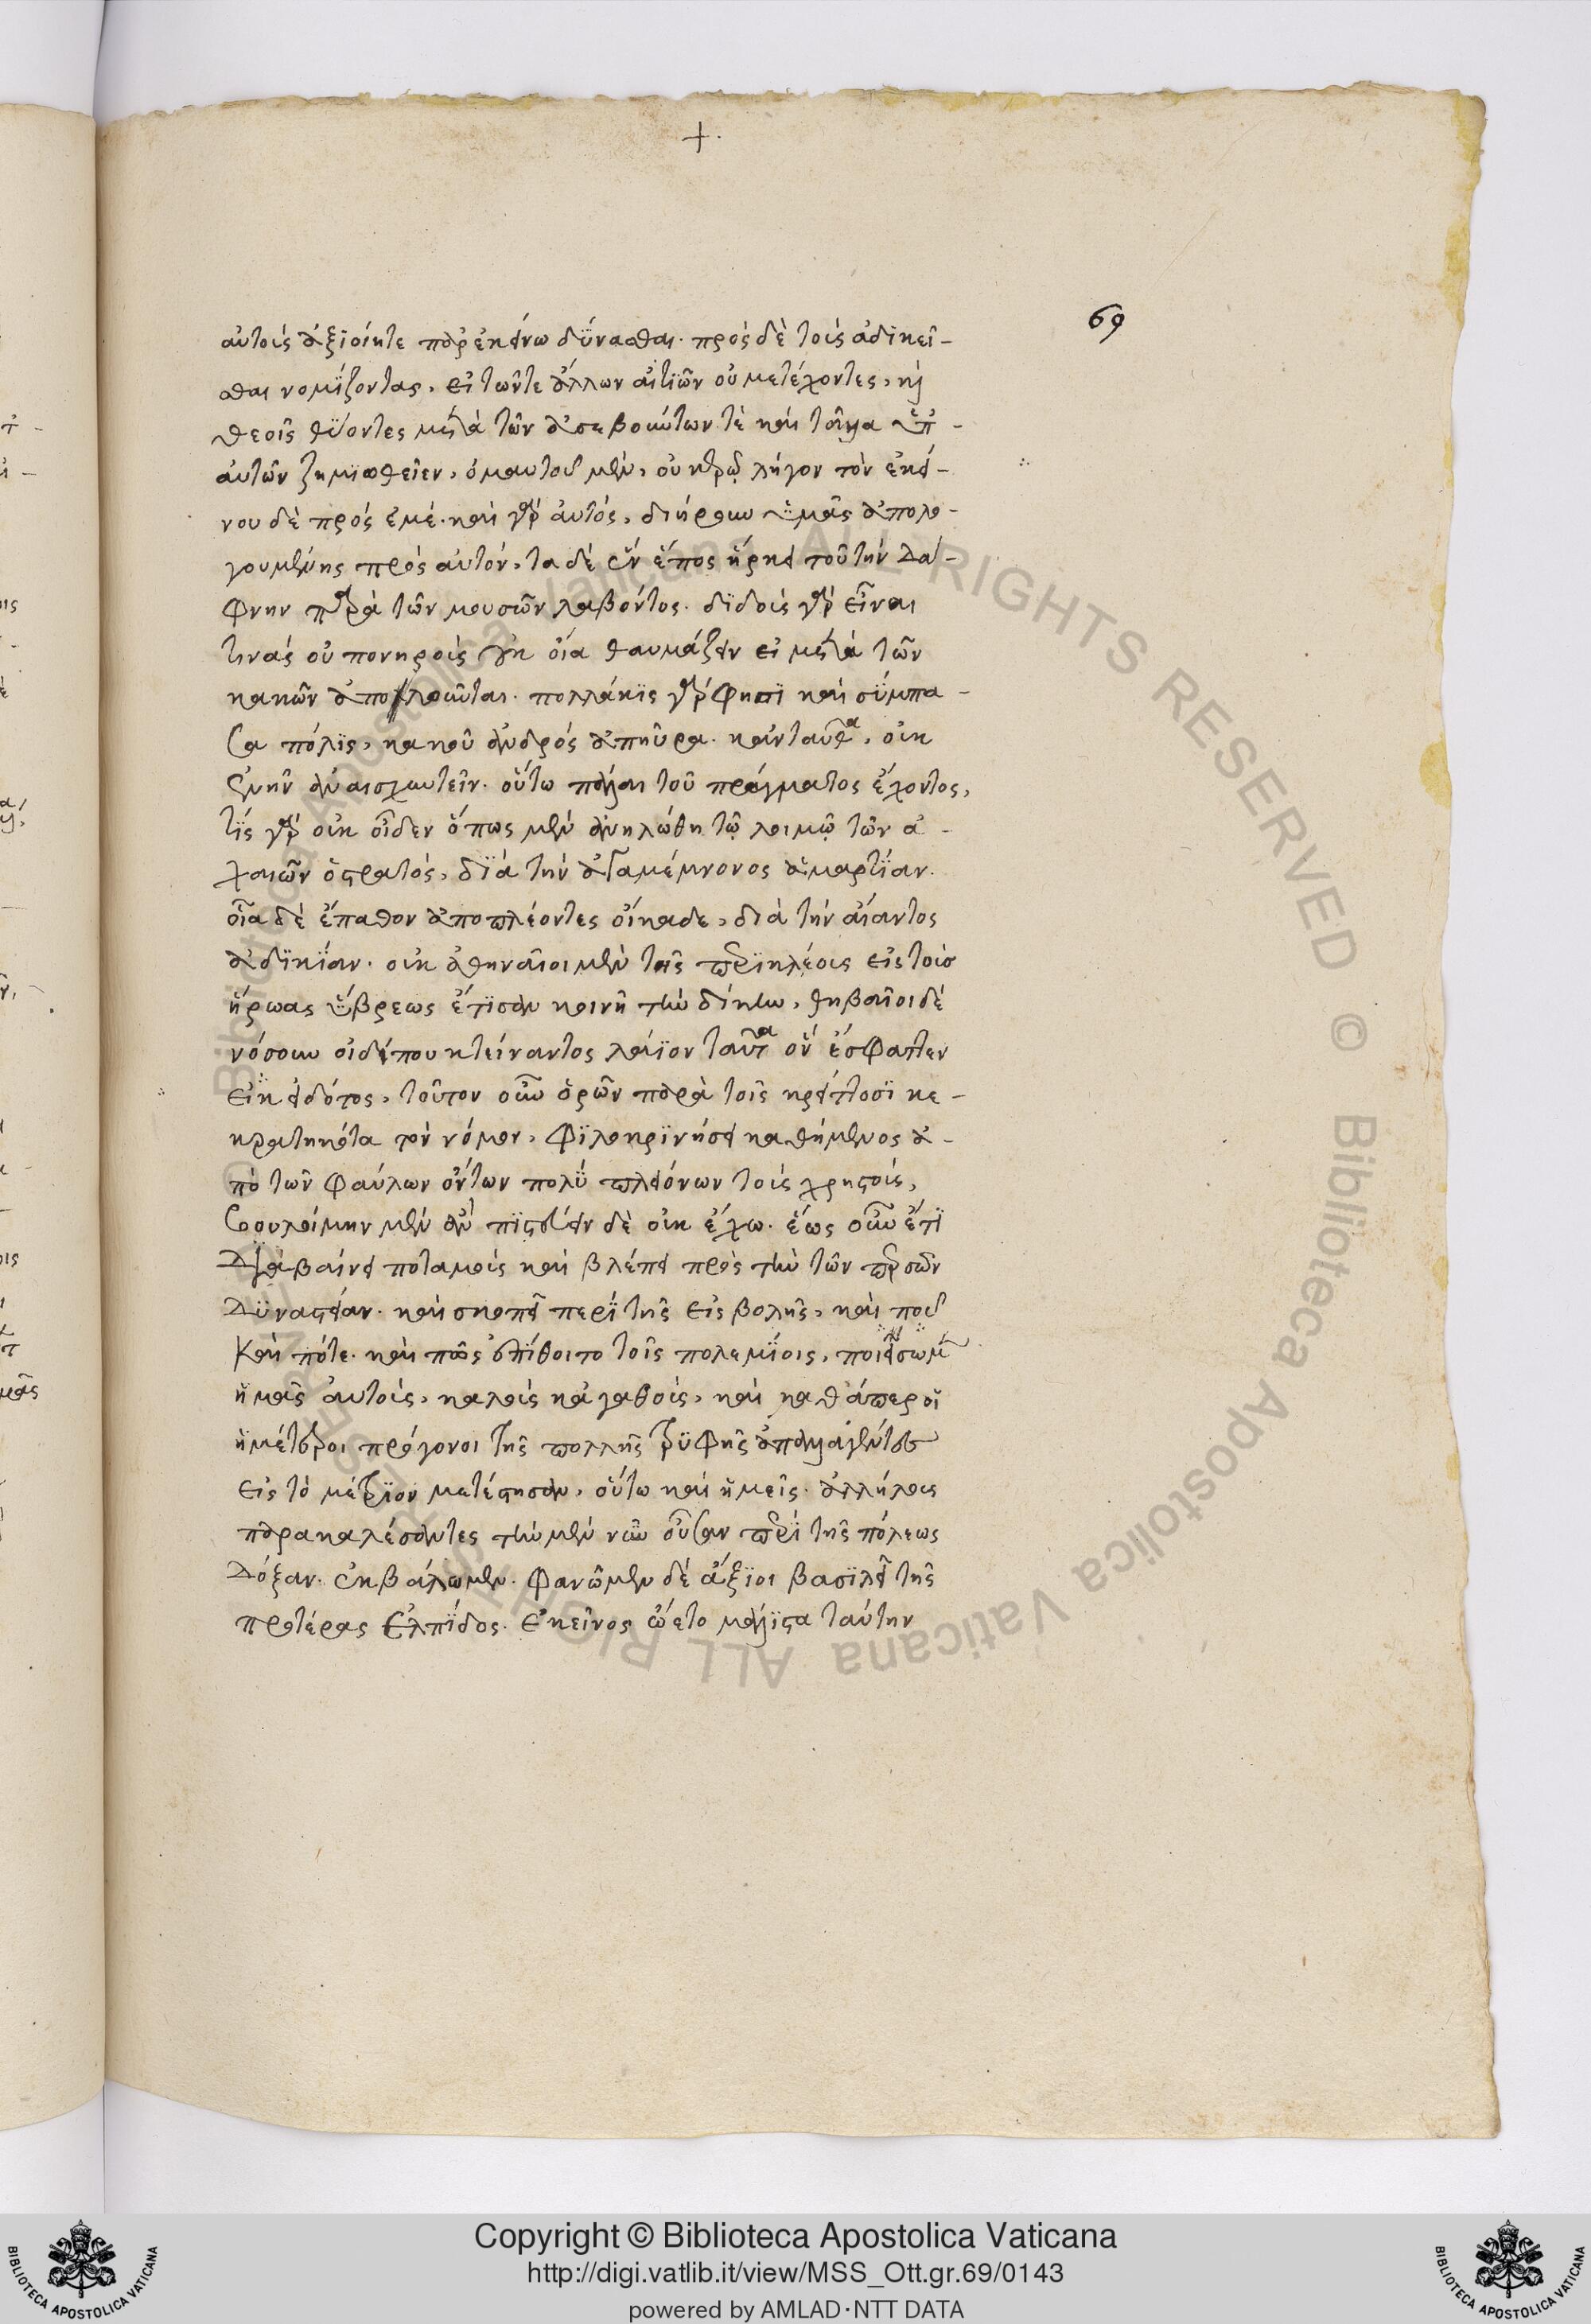 +.
69
αὐτοὺς ἀξιοῦτε παρ' ἐκείνω δύνασθαι. πρὸς δὲ τοὺς ἀδικεῖ-
σθαι νομίζοντας, εἰ τῶντε ἄλλων αἰτιῶν οὐ μετέχοντες, καὶ
θεοῖς θύοντες μετὰ τῶν ἀσεβούντων τὲ καὶ τοῖα ὑπ' -
αὐτῶν ζημιωθεῖεν, ἐμαυτοῦ μὲν, οὐκ ἐρῶ λόγον τὸν ἐκεί-
νου δὲ πρὸς ἐμέ. καὶ γὰρ αὐτὸς, διήρουν ὑμᾶς ἀπολο-
γουμένης πρὸς αὐτόν, τα δὲ ἦν ἔπος ἤρκει τοῦ τὴν Δά-
φνην παρὰ τῶν μουσῶν λαβόντος. δίδους γὰρ εἶναι
τινὰς οὐ πονηροὺς οὐκ οἴα θαυμάζειν εἰ μετὰ τῶν
κακῶν ἀπολοῦνται. πολλάκις γὰρ φησὶ καὶ σύμπα -
σα πόλις, κακοῦ ἀνδρὸς ἀπηῦρα. κἀνταῦθα, οὐκ
ἐνῆν ἀναισχυντεῖν. οὕτω πάλαι τοῦ πράγματος ἔχοντος,
τίς γὰρ οὐκ οἶδεν ὅπως μὲν ἀνηλώθη τῷ λοιμῷ τῶν ἀ -
χαιῶν ὁ στρατὸς, διὰ τὴν ἀγαμέμνονος ἁμαρτίαν.
οἷα δὲ ἔπαθον ἀποπλέοντες οἴκαδε, διὰ τὴν αἴαντος
ἀδικίαν. οὐκ ἀθηναῖοι μὲν τῆς περικλέους εἰς τοὺς
ἥρωας ὕβρεως ἔτισαν κοινῆ τὴν δίκην, θηβαῖοι δὲ
νόσουν οἰδίπου κτείναντος λάϊον ταῦτα οὖν ἔσφαττεν
εἰκ εἰδότος, τοῦτον οὖν ὁρῶν παρὰ τοῖς κρείττοσι κε -
κρατηκότα τὸν νόμον, φιλοκρινήσει καθήμενος ἀ -
πὸ τῶν φαύλων ὄντων πολὺ πλειόνων τοὺς χρηστοὺς,
βουλοίμην μὲν ἂν πιστεύειν δὲ οὐκ ἔχω. ἕως οὖν ἔτι
Διαβαίνει ποταμοὺς καὶ βλέπει πρὸς τὴν τῶν περσῶν
Δυναστείαν. καὶ σκοπεῖ περὶ τῆς εἰσβολῆς, καὶ ποῦ
Καὶ πότε. καὶ πῶς ἐπίθοιτο τοῖς πολεμίοις, ποιήσωμεν
ἡμᾶς αὐτοὺς, καλοὺς κἀγαθοὺς, καὶ καθάπερ οἱ
ἡμέτεροι πρόγονοι τῆς πολλῆς τρυφῆς ἀπαλλαγέντες
εἰς τὸ μέτριον μετέστησαν, οὕτω καὶ ἡμεῖς. ἀλλήλους
παρακαλέσαντες τὴν μὲν νῦν οὖσαν περὶ τῆς πόλεως
Δόξαν. ἐκβάλωμεν. φανῶμεν δὲ ἄξιοι βασιλεῖ τῆς
προτέρας ἐλπίδος. ἐκεῖνος ᾤετο μάλιστα ταύτην
Copyright © Biblioteca Apostolica Vaticana
http://digi.vatlib.it/view/MSS_Ott.gr.69/0143
powered by AMLAD·NTT DATA